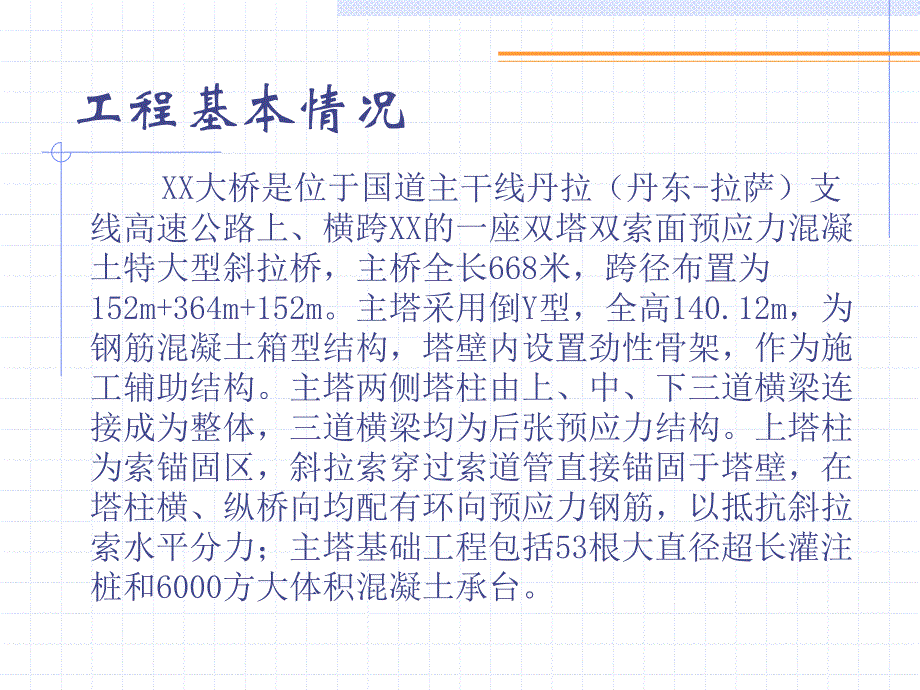 工程基本情况
XX大桥是位于国道主干线丹拉（丹东-拉萨）支
线高速公路上、横跨XX的一座双塔双索面预应力混凝
土特大型斜拉桥，主桥全长668米，跨径布置为
152m+364m+152m。主塔采用倒Y型，全高140.12m，为
钢筋混凝土箱型结构，塔壁内设置劲性骨架，作为施
工辅助结构。主塔两侧塔柱由上、中、下三道横梁连
接成为整体，三道横梁均为后张预应力结构。上塔柱
为索锚固区，斜拉索穿过索道管直接锚固于塔壁，在
塔柱横、纵桥向均配有环向预应力钢筋，以抵抗斜拉
索水平分力；主塔基础工程包括53根大直径超长灌注
桩和6000方大体积混凝土承台。